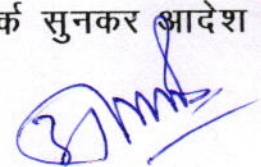 र्क सुनकर आदेश